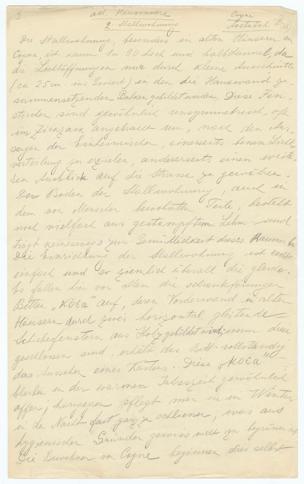 2. Stallwohnung
Cogne
Die Stallwohnung, besonders in alten Häusern in
Cogne, ist kaum 2 m hoch und halbdunkel, da
die Lichtöffnungen nur durch kleine Ausschnitte
(ca 25 cm im Geviert) an den die Hauswand
zusammensetzenden Balken gebildet werden. Diese Fen-
sterchen sind gewöhnlich unsymmetrisch, oft
im Zickzack angebracht um, nach den Aus-
sagen der Einheimischen, einerseits Licht-
verteilung zu erzielen, andererseits einen
Ausblick auf die Strasse zu gewähren.
Der Boden der Stallwohnung, auch in
dem von Menschen bewohnten Teile, besteht
und meistens aus gestampftem Lehm und
trägt keineswegs zur Gemütlichkeit dieses Raumes bei.
Die Einrichtung der Stallwohnung ist
einfach und so ziemlich überall die gleiche.
So fallen vor allem die schrankförmigen
Betten, "KOCA" auf, deren Vorderwand in alten
Häusern durch zwei horizontal gleitende
Schiebefenstern aus Holz gebildet wird; wenn diese
geschlossen sind, erhält das Bett vollständig
das Aussehen eines Kastens. Diese "KOCA"
bleiben in der warmen Jahreszeit gewöhnlich
offen, hingegen pflegt man sie im Winter
in der Nacht fast ganz zu schliessen, was aus
hygienischen Gründen gewiss nicht zu begrüssen ist.
Die Bewohner von Cogne beginnen dies selbst